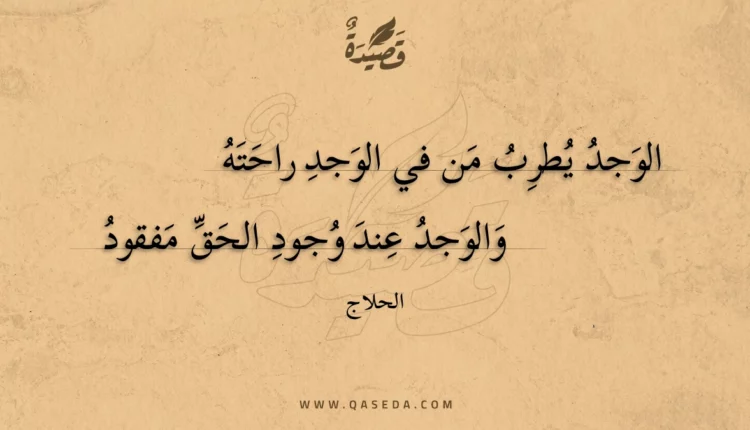 قَصِيدَةٌ
الوَجدُ يُطرِبُ مَن في الوَجدِ راحَتَهُ
وَالوَجدُ عِندَ وُجودِ الحَقِّ مَفقودُ
الحلاج
WWW.QASEDA.COM